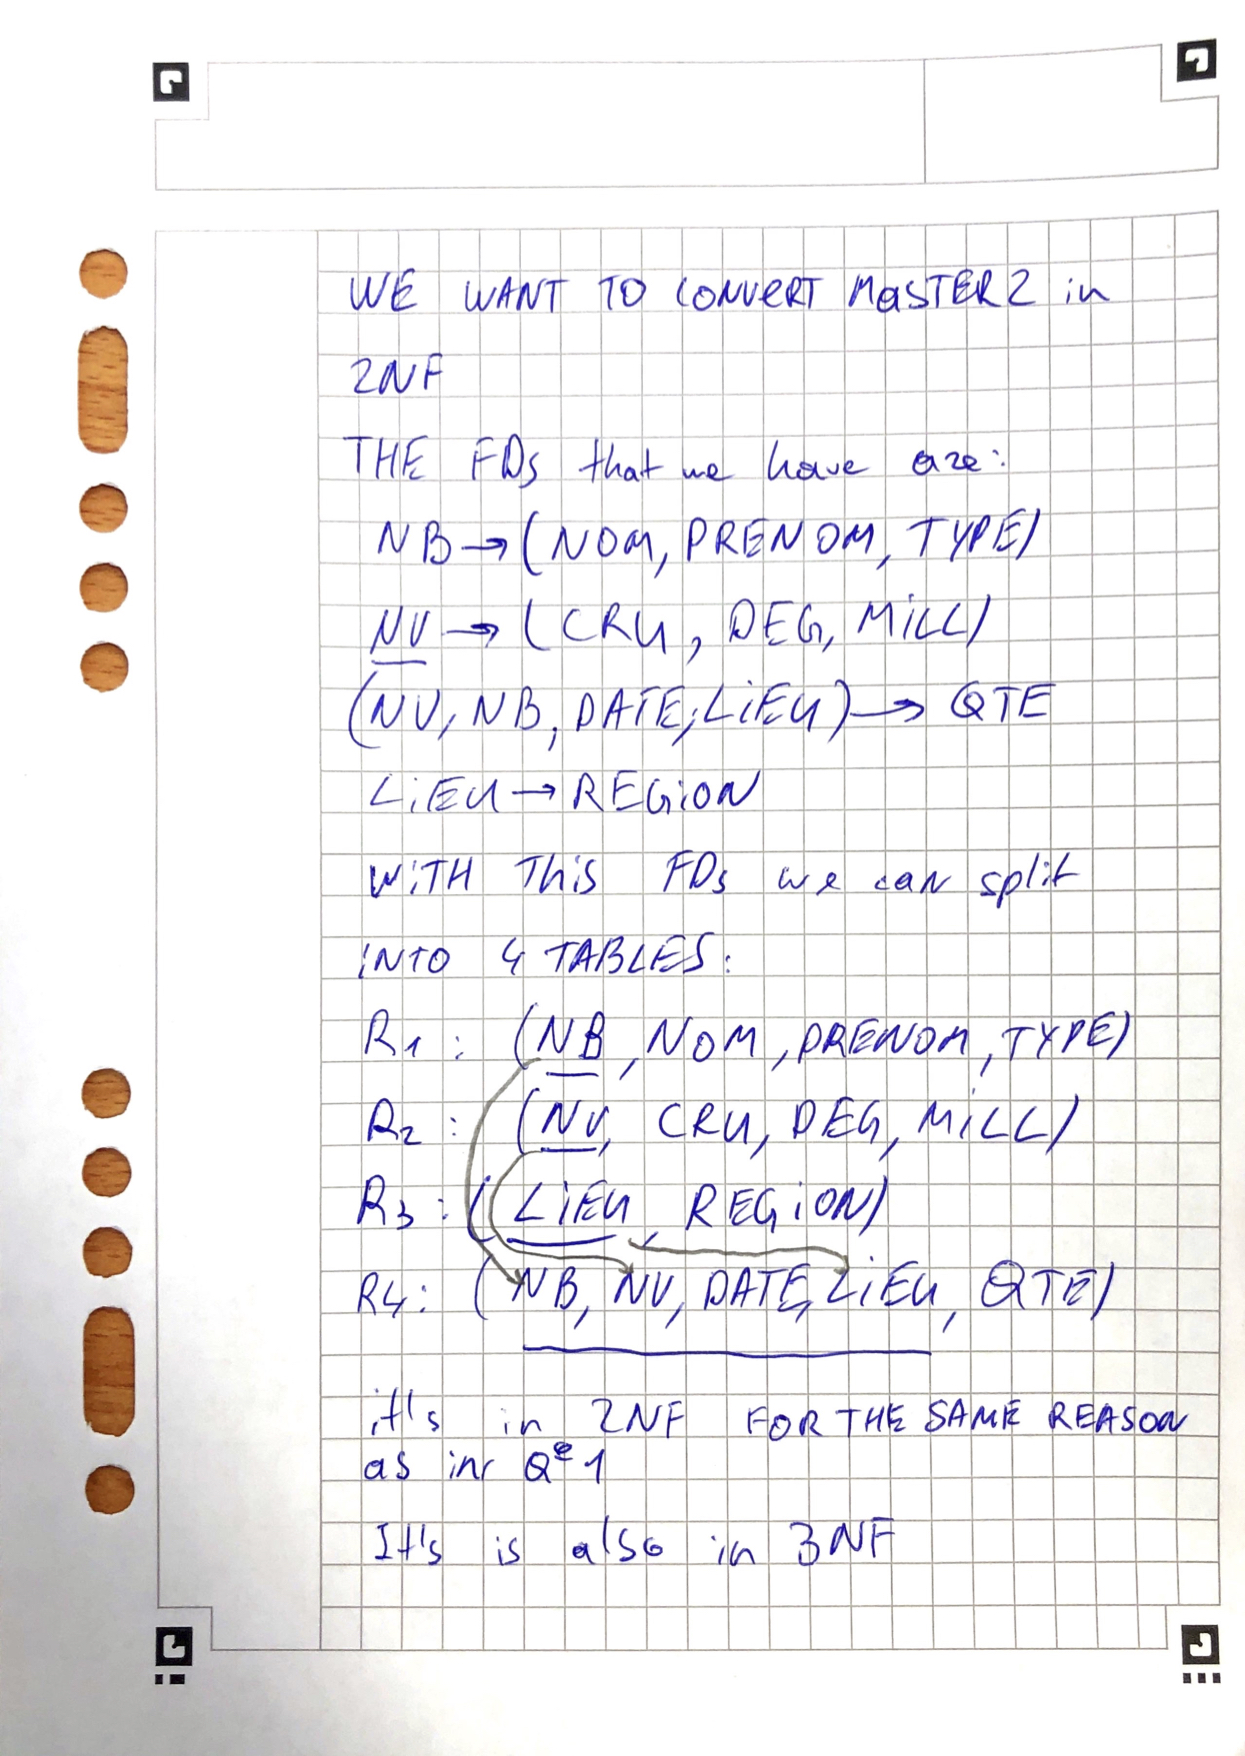 WE WANT TO CONVERT MASTER2 in
2NF
THE FDs that we have are:
NB → (NOM, PRENOM, TYPE)
NV → (CRU, DEG, MILL)
(NV, NB, DATE, LIEU) → QTE
LIEU → REGION
WITH This FDs we can split
INTO 4 TABLES:
R1 : (NB, NOM, PRENOM, TYPE)
R2 : (NV, CRU, DEG, MILL)
R3 : (LIEU, REGION)
R4 : (NB, NV, DATE, LIEU, QTE)
it's in 2NF FOR THE SAME REASON
as in Qe 1
It's is also in 3NF